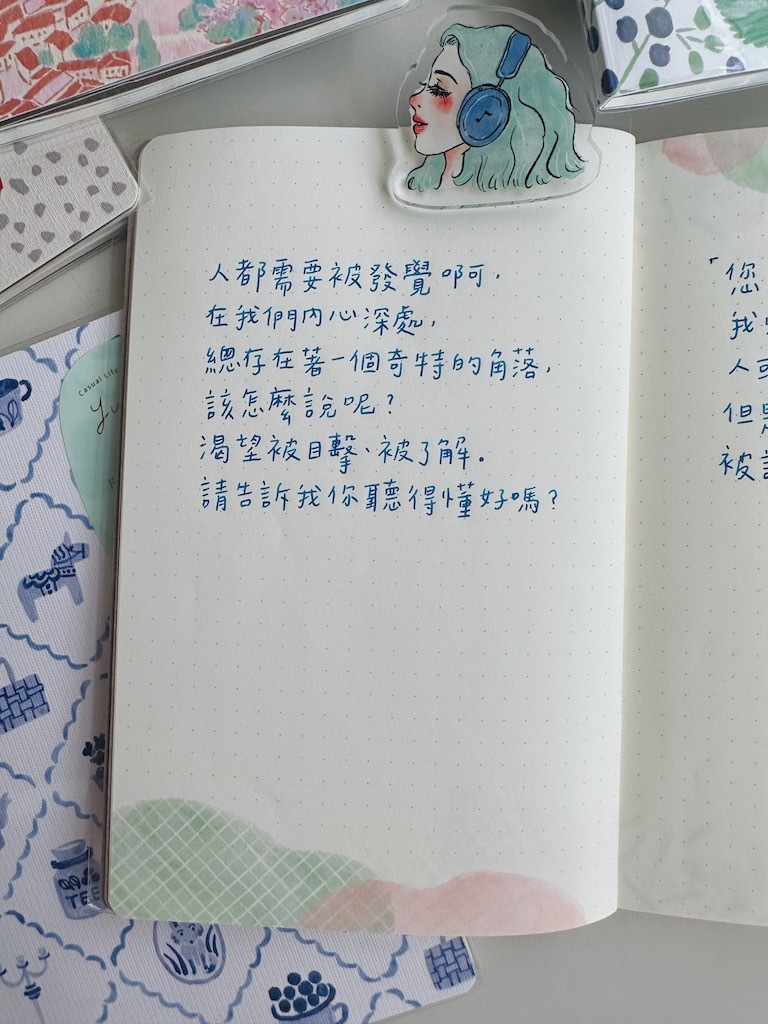 人都需要被發覺啊,
在我們內心深處,
總存在著一個奇特的角落,
該怎麼說呢?
渴望被目擊、被了解。
請告訴我你聽得懂好嗎?
「您
我
人
但
被
Casual Life
TEE